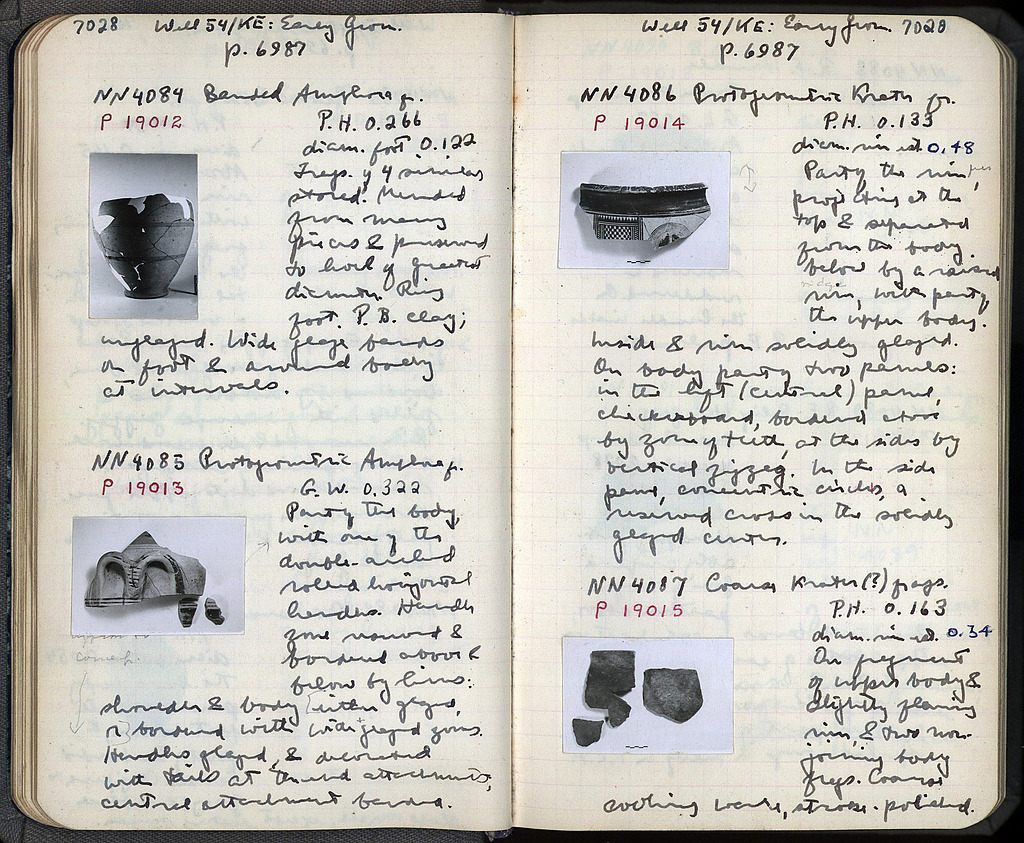 7028 Well 54/KE: Early Geom.
p. 6987
NN4084 Banded Amphora fr.
P 19012 P.H. 0.266
diam. foot 0.122
Frags. of 4 similar
stored. Mended
from many
pieces & preserved
to level of greatest
diameter. Ring
foot. P. B. clay;
unglazed. Wide glaze bands
on foot & around body
at intervals.
NN4085 Protogeometric Amphora fr.
P 19013 G.W. 0.322
Part of the body,
with one of the
double-arched
rolled horizontal
handles. Handle
zone reserved &
bordered above &
below by lines:
shoulder & body either glazed,
or bordered with wide glazed zones.
Handles glazed, & decorated
with tails at the end attachments,
central attachment banded.
Well 54/KE: Early Geom. 7028
p. 6987
NN4086 Protogeometric Krater fr.
P 19014 P.H. 0.133
diam. rim est. 0.48
Part of the rim,
projecting at the
top & separated
from the body
below by a raised
ridge
rim, with part of
the upper body.
Inside & rim solidly glazed.
On body part of two panels:
in the left (central) panel,
checkerboard, bordered above
by zone of teeth, at the sides by
vertical zigzag. In the side
panel, concentric circles, a
reserved cross in the solidly
glazed center.
NN4087 Coarse Krater(?) frags.
P 19015 P.H. 0.163
diam. rim est. 0.34
One fragment
of upper body &
slightly flaring
rim & two non-
joining body
frags. Coarse
cooking ware, stroke-polished.